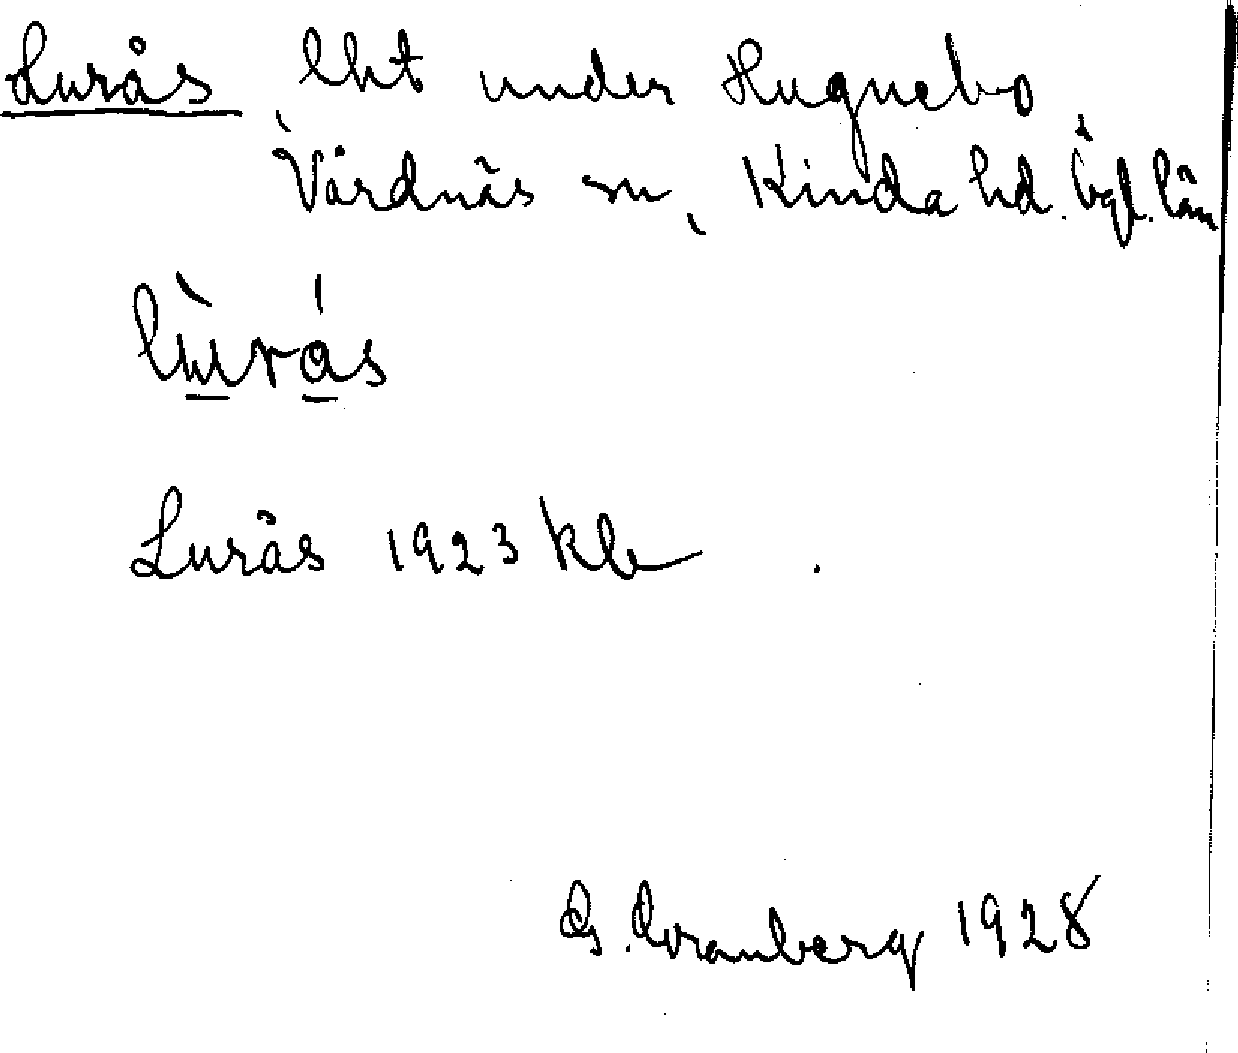 Lurås, lht under Hugnebo
Vårdnäs sn, Kinda hd. Ögl. län
lùrás
Lurås 1923 kb
G. Granberg 1928